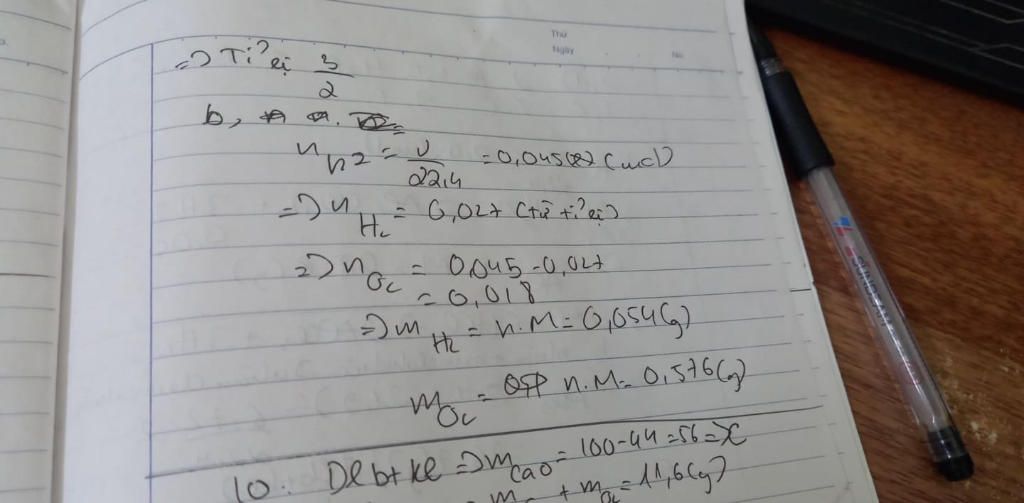 Thứ
Ngày No
=> Tỉ lệ 3/2
b,
n h2 = V/22,4 = 0,045 (mol)
=> n H2 = 0,027 (từ tỉ lệ)
=> n O2 = 0,045 - 0,027
= 0,018
=> m H2 = n.M = 0,054(g)
m O2 = n.M = 0,576(g)
10. Dlbtkl => m CaO = 100-44 = 56 = x
m + m O2 = 11,6(g)